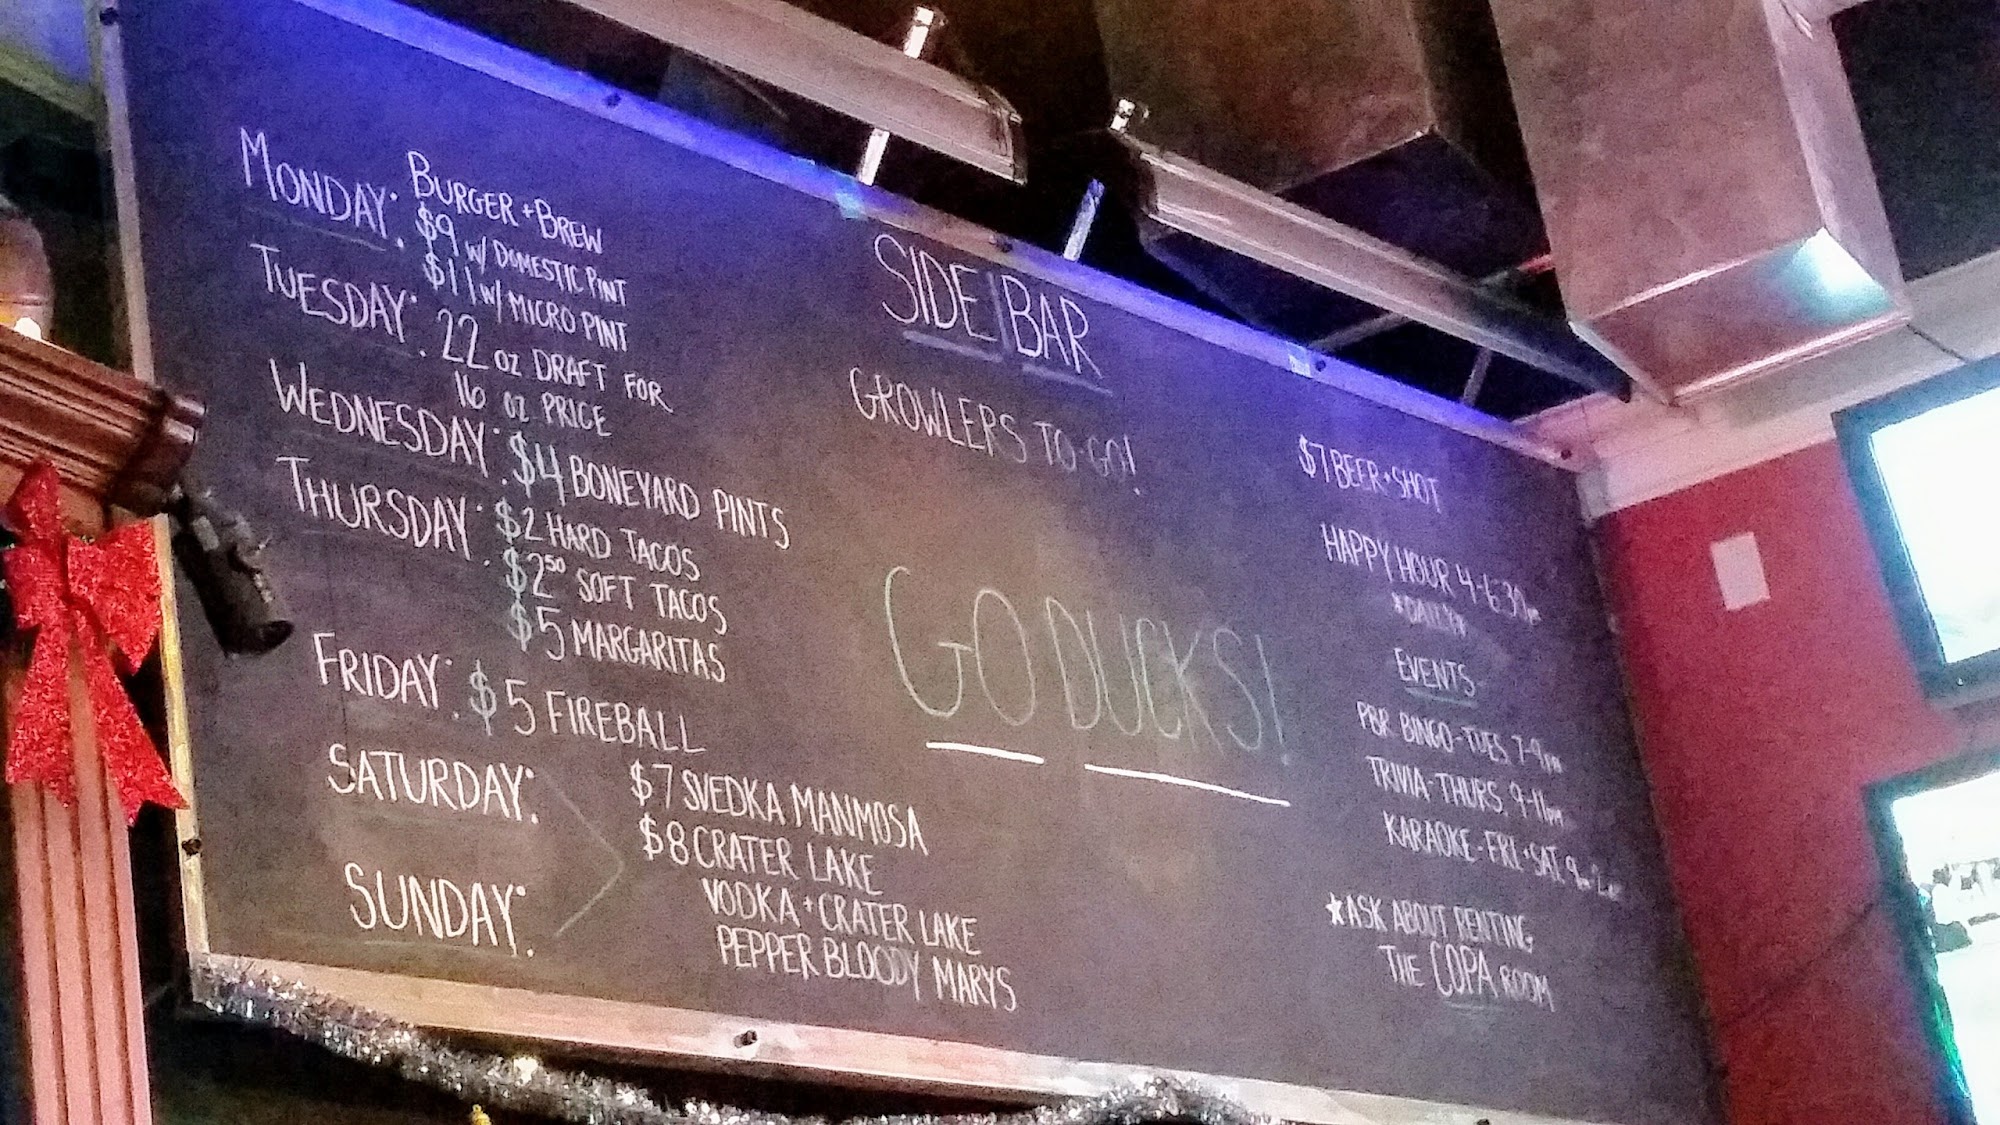 MONDAY: BURGER + BREW
$9 W/ DOMESTIC PINT
$11 W/ MICRO PINT
TUESDAY: 22 OZ DRAFT FOR
16 OZ PRICE
WEDNESDAY: $4 BONEYARD PINTS
THURSDAY: $2 HARD TACOS
$2.50 SOFT TACOS
$5 MARGARITAS
FRIDAY: $5 FIREBALL
SATURDAY:
SUNDAY:
$7 SVEDKA MANMOSA
$8 CRATER LAKE
VODKA + CRATER LAKE
PEPPER BLOODY MARYS
SIDE BAR
GROWLERS TO-GO!
GO DUCKS!
$7 BEER + SHOT
HAPPY HOUR 4-6:30PM
*DAILY*
EVENTS
PBR BINGO - TUES 7-9PM
TRIVIA - THURS. 9-11PM
KARAOKE - FRI + SAT. 9PM-2AM
★ASK ABOUT RENTING
THE COPA ROOM